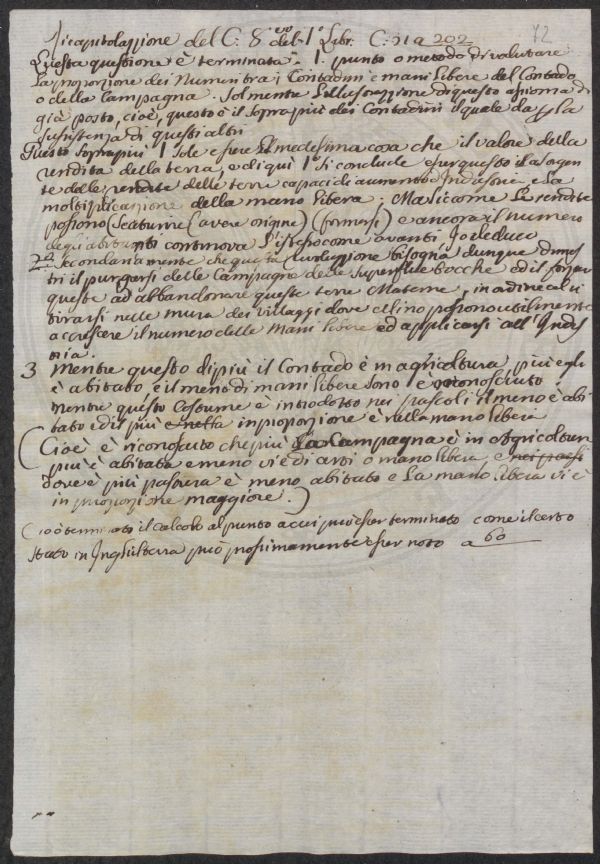 Ricapitolazzione del C: 8.vo del 1.o Libr. C: 51 a 202. 72
Questa questione è terminata. 1. punto o metodo di valutare
La proporzione dei Numeri tra i Contadini e mani libere del Contado
o della Campagna. Sol mente
già posto, cioè, questo è il soprapiù dei Contadini il quale da la
susistenza di questi altri
Questo soprapiù e fiere Il medesima cosa che il valore della
rendita della terra, e di quì si conclude esser questo la sorgen
te delle rendite delle terre capaci di aumento e Industria e La
moltiplicazione della mano libera; Ma sicome Le rendite
possono (scaturire (avere origine) (formarsi) e ancora il numero
degli abitanti continova L'istesso come avanti Io deduco
2.o secondariamente che questa bisogna dunque dimos
tri il purgarsi delle Campagne delle superflue bocche ed il forzar
queste ad abbandonare queste terre Materne, in ordine al ri
tirarsi nelle mura dei villaggi dove ellino possono utilmente
accrescere il numero delle Mani libere ed applicarsi all'Indus
tria.
3 Mentre questo di più il Contado è in agricoltura più egli
è abitato e il meno di mani libere sono è riconosciuto.
mentre questo Costume è introdotto nei pascoli il meno è abi
tato ed il più è nella in proporzione è nella mano libera
(Cioè è riconosciuto che più La Campagna è in Agricoltura
più è abitata e meno vi è di arti o mano libera, e nei paesi
dove è più pastura è meno abitato e La mano libera vi è
in proporzione maggiore.)
Ciò è terminato il calcolo al punto a cui può esser terminato come il certo
stato in Inghilterra può prossimamente esser noto a 60